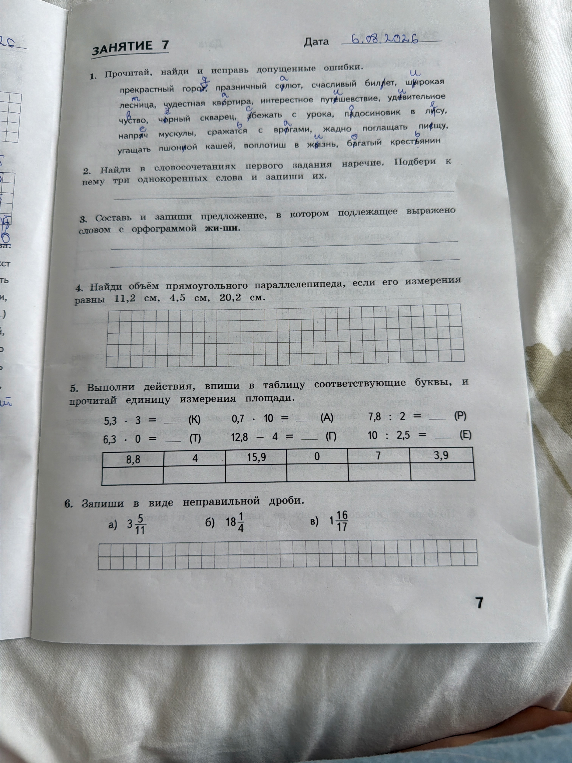 ЗАНЯТИЕ 7
Дата 6.08.2026
1. Прочитай, найди и исправь допущенные ошибки.
прекрастный горот, празничный солют, счасливый билет, шырокая
лесница, чудестная квортира, интерестное путишествие, удевительное
чуство, чорный скварец, збежать с урока, падосиновик в лису,
напрячь мускулы, сражатся с врогами, жадно поглащать пищу,
угащать пшоной кашей, воплотиш в жызнь, багатый крестянин
2. Найди в словосочетаниях первого задания наречие. Подбери к
нему три однокоренных слова и запиши их.
3. Составь и запиши предложение, в котором подлежащее выражено
словом с орфограммой жи-ши.
4. Найди объём прямоугольного параллелепипеда, если его измерения
равны 11,2 см, 4,5 см, 20,2 см.
5. Выполни действия, впиши в таблицу соответствующие буквы, и
прочитай единицу измерения площади.
5,3 · 3 = (К) 0,7 · 10 = (А) 7,8 : 2 = (Р)
6,3 · 0 = (Т) 12,8 – 4 = (Г) 10 : 2,5 = (Е)
8,8 4 15,9 0 7 3,9
6. Запиши в виде неправильной дроби.
а) 3 5/11 б) 18 1/4 в) 1 16/17
7